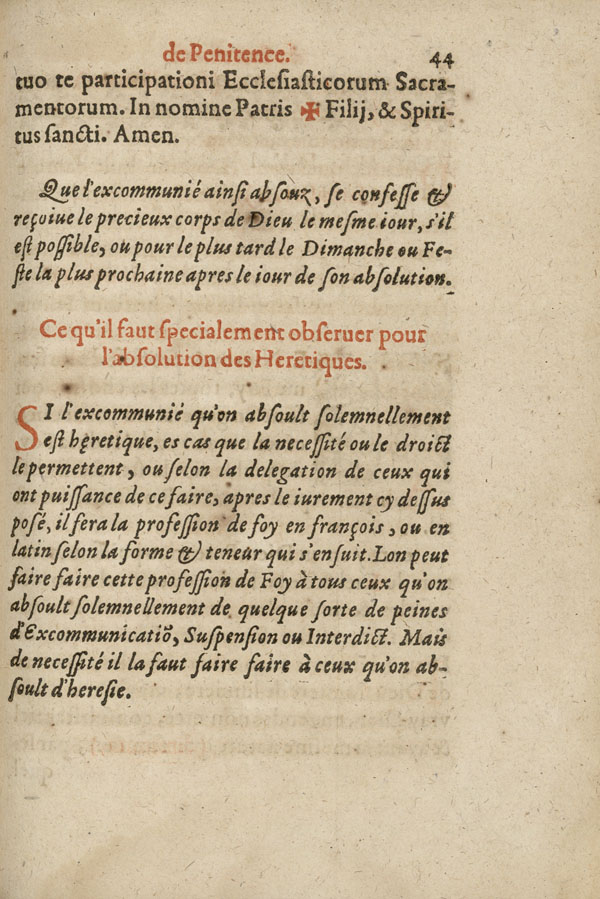 de Penitence. 44
tuo te participationi Ecclesiasticorum Sacra-
mentorum. In nomine Patris ✠ Filij, & Spiri-
tus sancti. Amen.
Que l'excommunié ainsi absouz, se confesse &
reçoiue le precieux corps de Dieu le mesme iour, s'il
est possible, ou pour le plus tard le Dimanche ou Fe-
ste la plus prochaine apres le iour de son absolution.
Ce qu'il faut specialement obseruer pour
l'absolution des Heretiques.
SI l'excommunié qu'on absoult solemnellement
est hęretique, es cas que la necessité ou le droict
le permettent, ou selon la delegation de ceux qui
ont puissance de ce faire, apres le iurement cy dessus
posé, il fera la profession de foy en françois, ou en
latin selon la forme & teneur qui s'ensuit. Lon peut
faire faire cette profession de Foy à tous ceux qu'on
absoult solemnellement de quelque sorte de peines
d'Excommunicatiõ, Suspension ou Interdict. Mais
de necessité il la faut faire faire à ceux qu'on ab-
soult d'heresie.